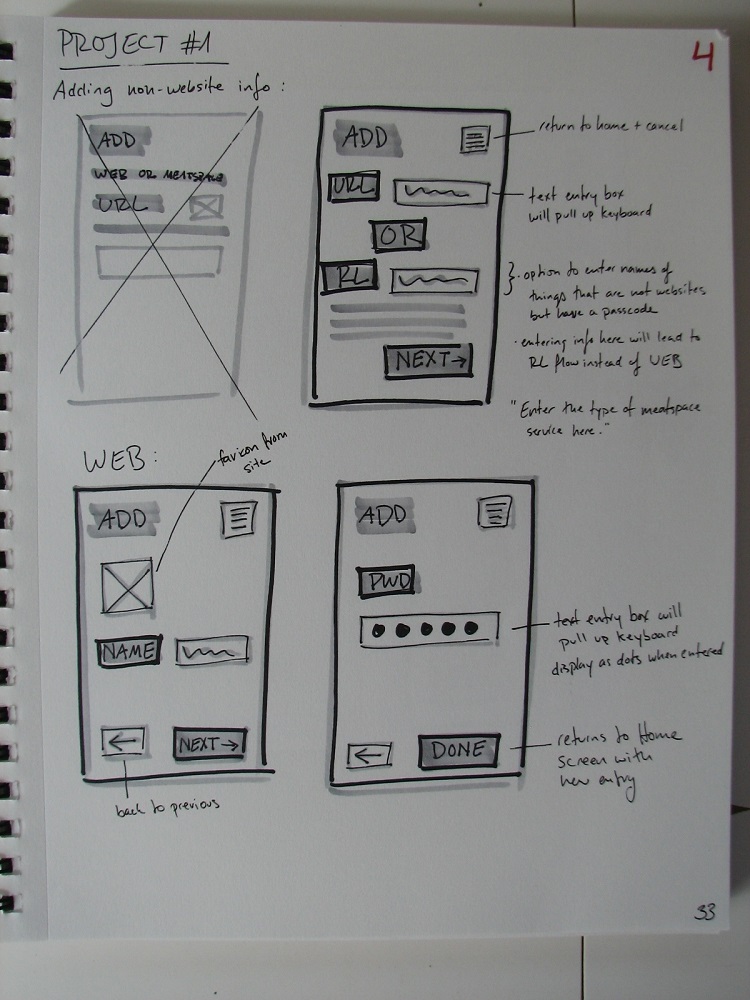 PROJECT #1
4
Adding non-website info:
ADD
WEB OR MEATSPACE
URL
ADD
return to home + cancel
URL
text entry box
will pull up keyboard
OR
RL
· option to enter names of
things that are not websites
but have a passcode
· entering info here will lead to
RL flow instead of WEB
NEXT→
"Enter the type of meatspace
service here."
WEB:
favicon from
site
ADD
NAME
←
NEXT→
back to previous
ADD
PWD
text entry box will
pull up keyboard
display as dots when entered
←
DONE
returns to Home
screen with
new entry
33